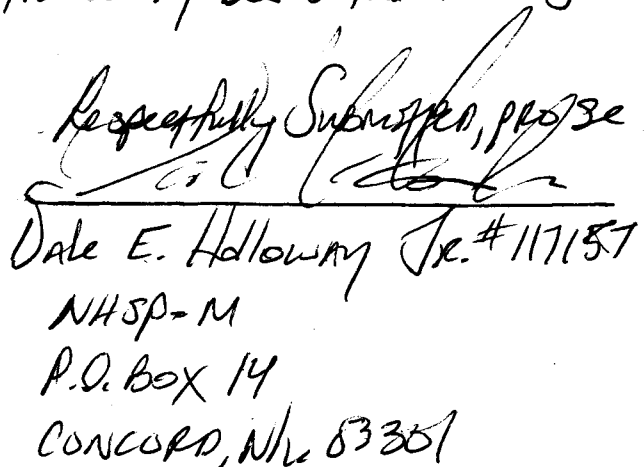 Respectfully Submitted, pro se
Dale E. Holloway Jr. #117157
NHSP-M
P.O. Box 14
CONCORD, NH. 03301